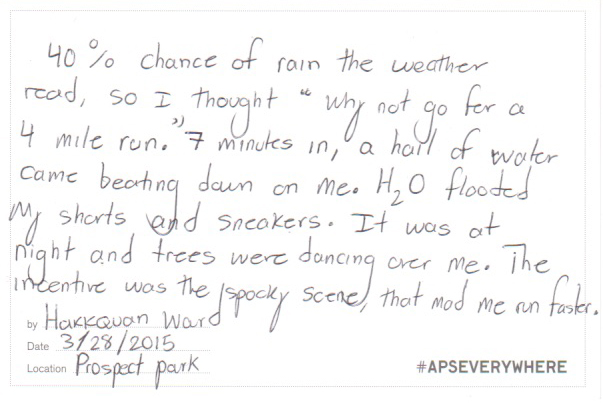 40% chance of rain the weather
read, so I thought "why not go for a
4 mile run." 7 minutes in, a hail of water
came beating down on me. H₂O flooded
My shorts and sneakers. It was at
night and trees were dancing over me. The
incentive was the spooky scene, that mad me run faster.
by Hakkquan Ward
Date 3/28/2015
Location Prospect park
#APSEVERYWHERE